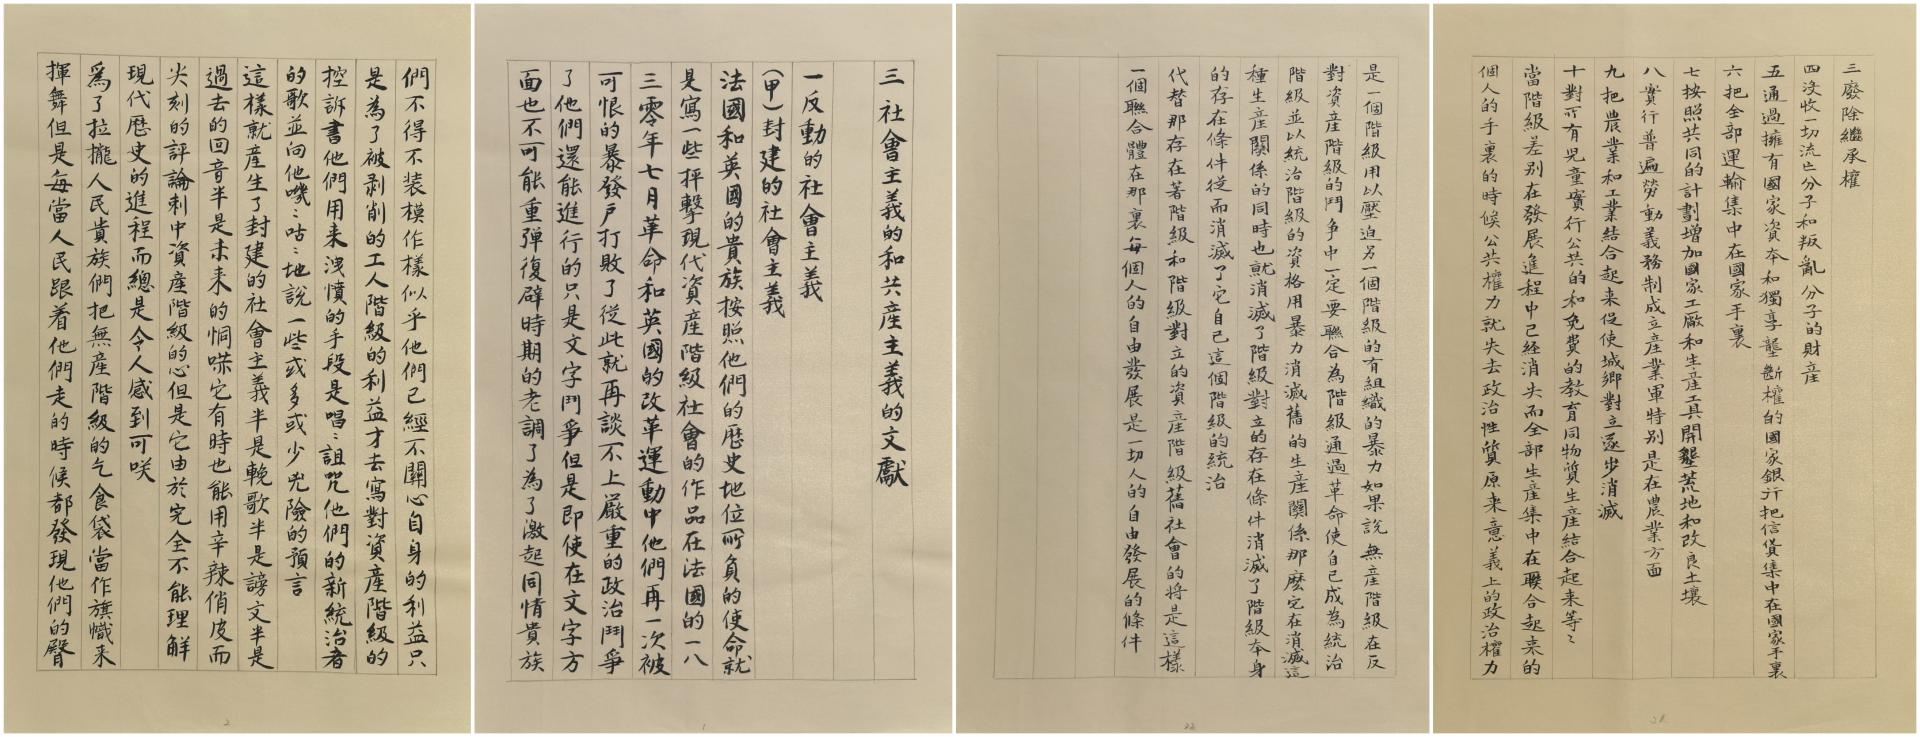 三廢除繼承權
四沒收一切流亡分子和叛亂分子的財產
五通過擁有國家資本和獨享壟斷權的國家銀行把信貸集中在國家手裏
六把全部運輸集中在國家手裏
七按照共同的計劃增加國家工廠和生產工具開墾荒地和改良土壤
八實行普遍勞動義務制成立產業軍特別是在農業方面
九把農業和工業結合起來促使城鄉對立逐步消滅
十對所有兒童實行公共的和免費的教育同物質生產結合起來等〻
當階級差別在發展進程中已經消失而全部生產集中在聯合起來的
個人的手裏的時候公共權力就失去政治性質原來意義上的政治權力
是一個階級用以壓迫另一個階級的有組織的暴力如果說無產階級在反
對資產階級的鬥爭中一定要聯合為階級通過革命使自己成為統治
階級並以統治階級的資格用暴力消滅舊的生產關係那麼它在消滅這
種生產關係的同時也就消滅了階級對立的存在條件消滅了階級本身
的存在條件從而消滅了它自己這個階級的統治
代替那存在著階級和階級對立的資產階級舊社會的將是這樣
一個聯合體在那裏每個人的自由發展是一切人的自由發展的條件
22
三 社會主義的和共產主義的文獻
一反動的社會主義
(甲)封建的社會主義
法國和英國的貴族按照他們的歷史地位所負的使命就
是寫一些抨擊現代資產階級社會的作品在法國的一八
三零年七月革命和英國的改革運動中他們再一次被
可恨的暴發戶打敗了從此就再談不上嚴重的政治鬥爭
了他們還能進行的只是文字鬥爭但是即使在文字方
面也不可能重彈復辟時期的老調了為了激起同情貴族
1
們不得不裝模作樣似乎他們已經不關心自身的利益只
是為了被剥削的工人階級的利益才去寫對資產階級的
控訴書他們用来洩憤的手段是唱〻詛咒他們的新統治者
的歌並向他嘰〻咕〻地說一些或多或少兇險的預言
這樣就產生了封建的社會主義半是輓歌半是謗文半是
過去的回音半是未来的恫嚇它有時也能用辛辣俏皮而
尖刻的評論刺中資產階級的心但是它由於完全不能理解
現代歷史的進程而總是令人感到可咲
為了拉攏人民貴族們把無產階級的乞食袋當作旗幟来
揮舞但是每當人民跟着他們走的時候都發現他們的臀
2